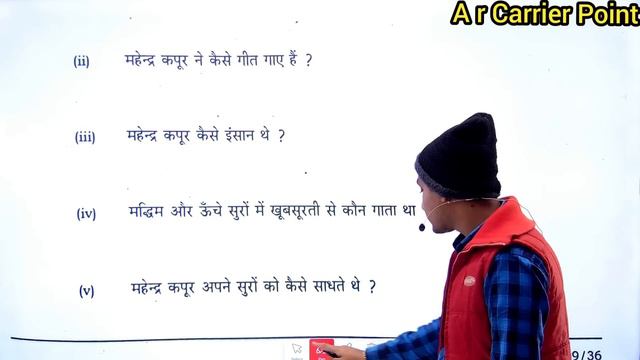 A r Carrier Point
(ii) महेन्द्र कपूर ने कैसे गीत गाए हैं ?
(iii) महेन्द्र कपूर कैसे इंसान थे ?
(iv) मद्धिम और ऊँचे सुरों में खूबसूरती से कौन गाता था
(v) महेन्द्र कपूर अपने सुरों को कैसे साधते थे ?
9/36